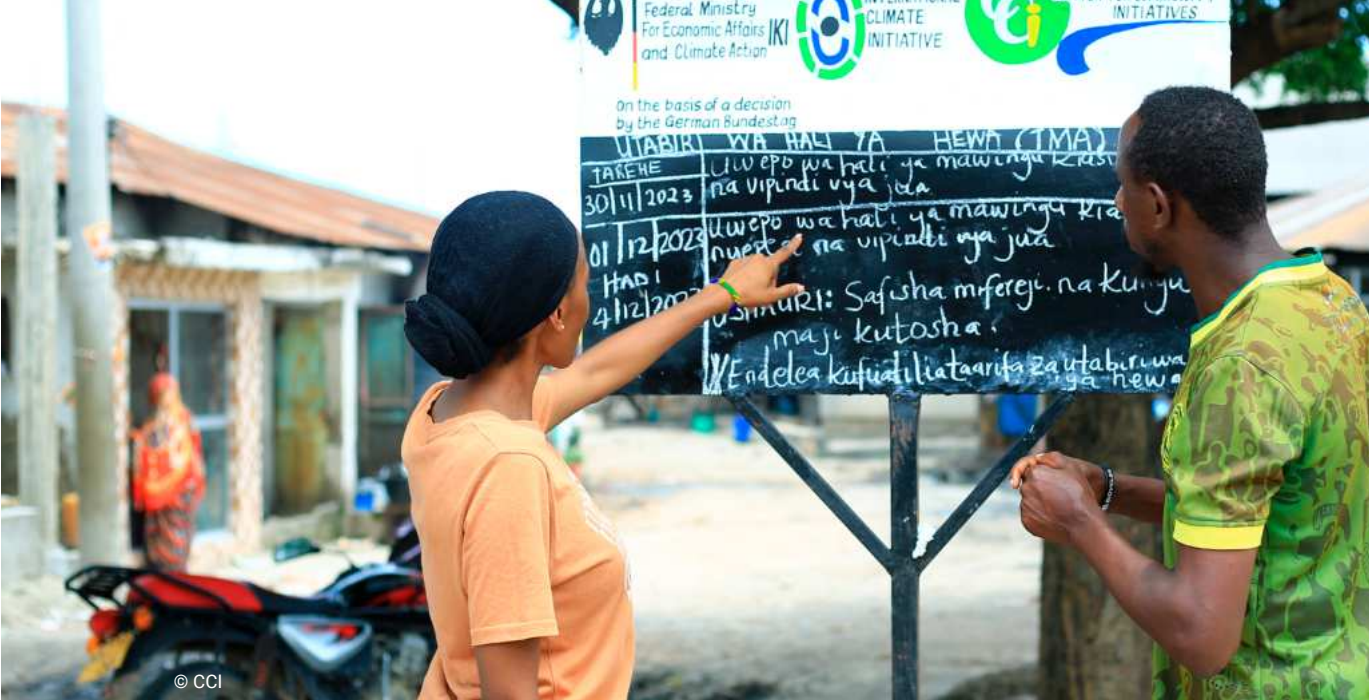 Federal Ministry
For Economic Affairs
and Climate Action
IKI
CLIMATE
INITIATIVE
INITIATIVES
on the basis of a decision
by the German Bundestag
UTABIRI WA HALI YA HEWA (TMA)
TAREHE
30/11/2023
Uwepo wa hali ya mawingu kiasi
na vipindi vya jua
01/12/2023
HADI
4/12/202
Uwepo wa hali ya mawingu kia
na vipindi vya jua
USHAURI: Safisha mifereji na
maji kutosha.
Endelea kufuatilia taarifa za utabiri wa
ya hewa
© CCI